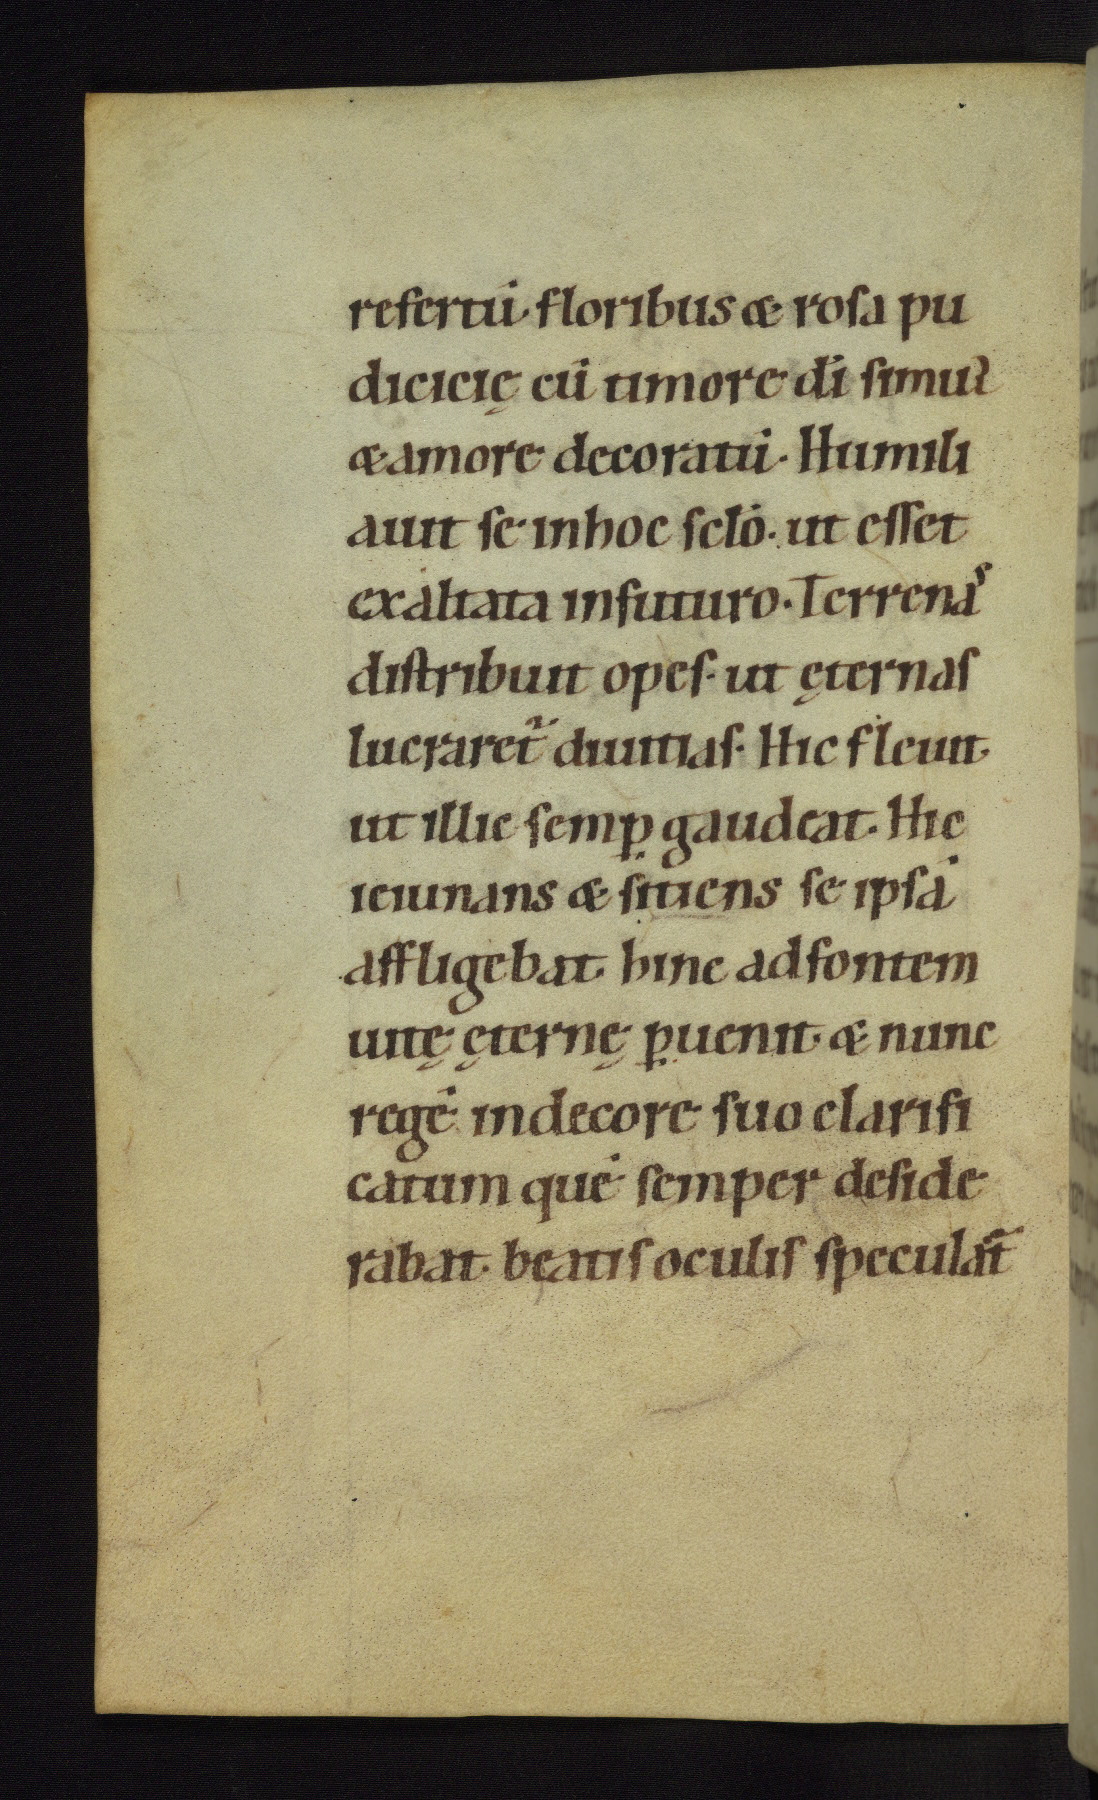 refertū floribus & rosa pu
dicicię cū timore dī simul
& amore decoratū. Humili
auit se in hoc sclō. ut esset
exaltata in futuro. Terrenas
distribuit opes. ut ęternas
lucraret᷑ diuitias. Hic fleuit.
ut illic semꝑ gaudeat. Hic
ieiunans & sitiens se ipsā
affligebat. hinc ad fontem
uitę ęternę ꝑuenit. & nunc
regē in decore suo clarifi
catum quē semper deside
rabat. beatis oculis speculat᷑